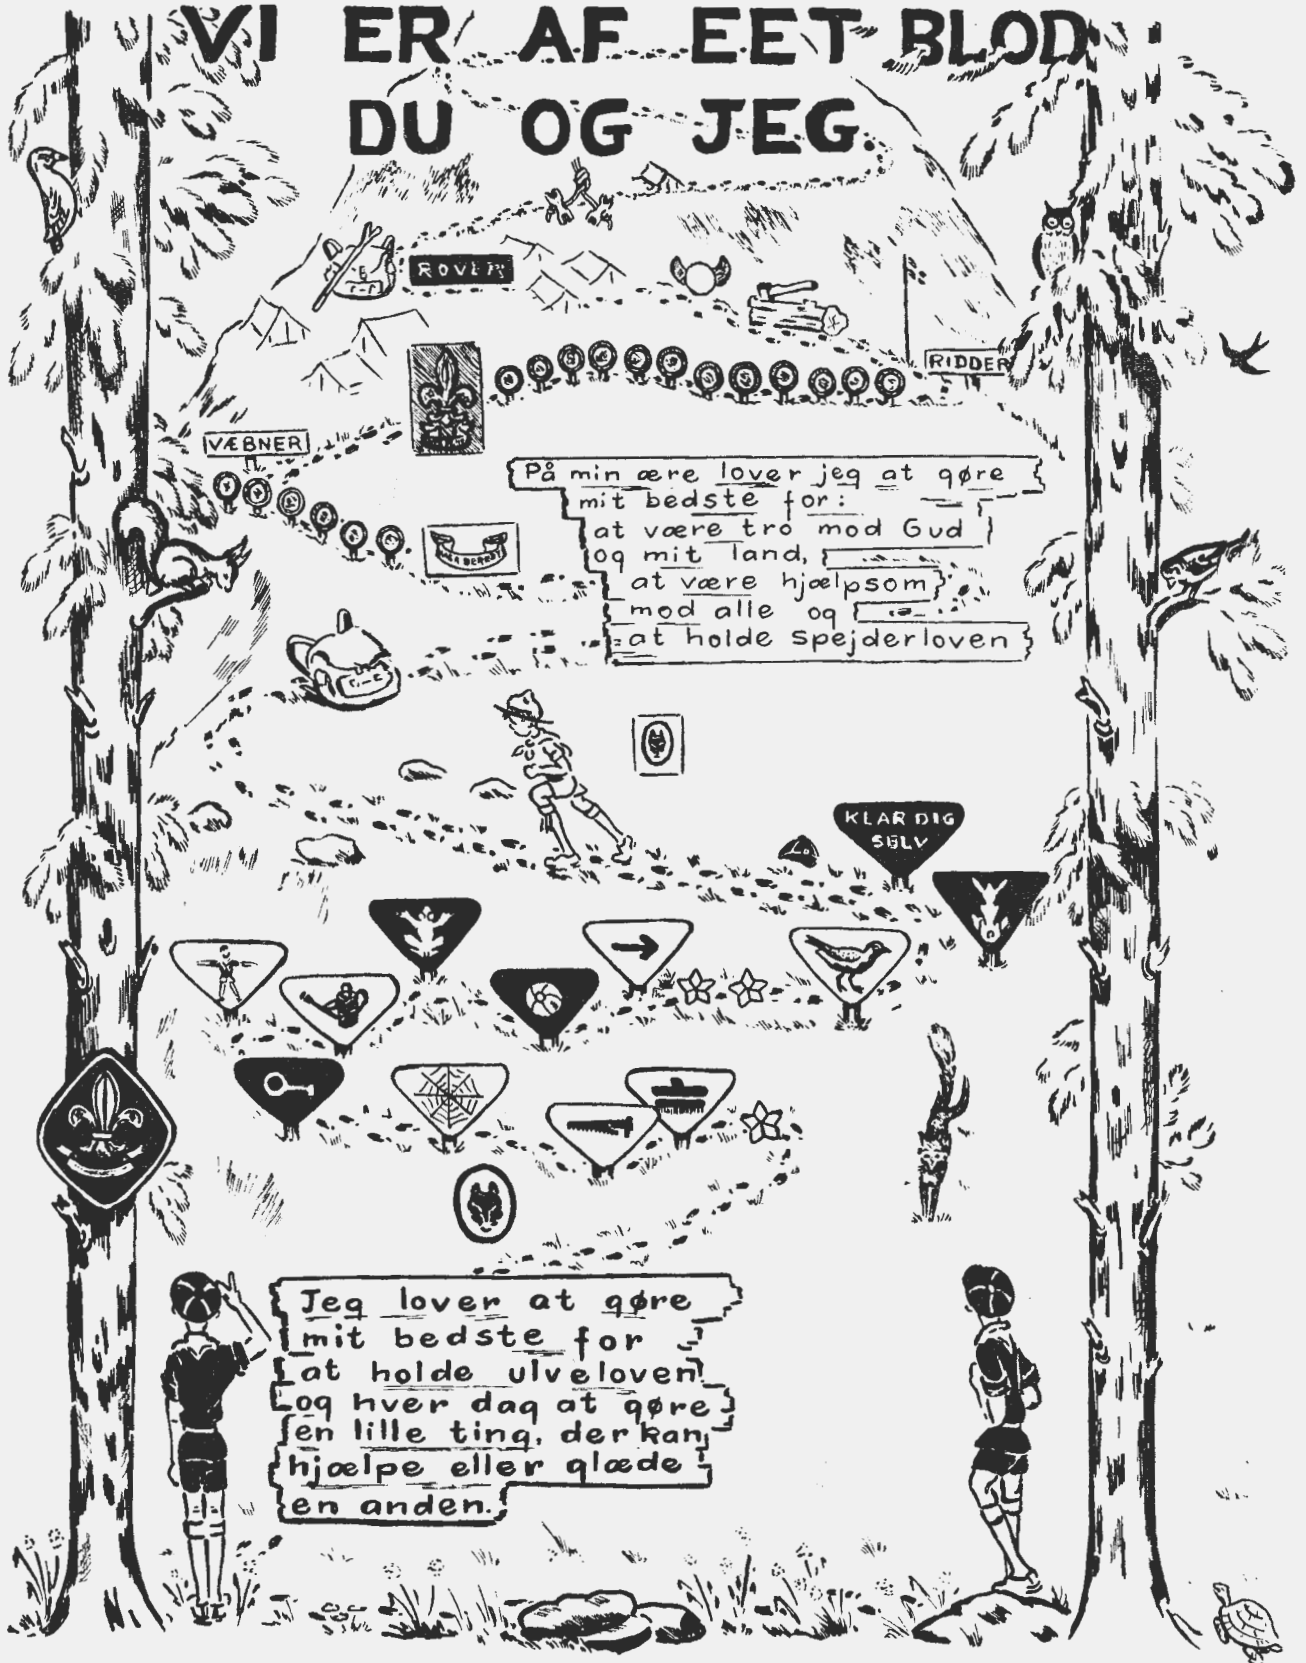 VI ER AF EET BLOD
DU OG JEG.
ROVER
RIDDER
VÆBNER
På min ære lover jeg at gøre
mit bedste for:
at være tro mod Gud
og mit land,
at være hjælpsom
mod alle og
at holde spejderloven
VÆR BEREDT
KLAR DIG
SELV
Jeg lover at gøre
mit bedste for
at holde ulveloven
og hver dag at gøre
en lille ting, der kan
hjælpe eller glæde
en anden.